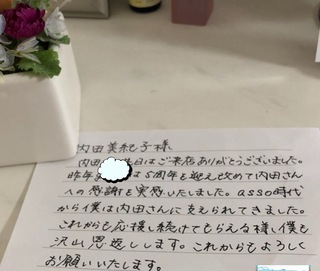 内田美紀子様
内田 日はご来店ありがとうございました。
昨年 は5周年を迎え改めて内田さん
への感謝を実感いたしました。asso時代
から僕は内田さんに支えられてきました。
これからも応援し続けてもらえる様、僕も
沢山恩返しします。これからもよろしく
お願いいたします。